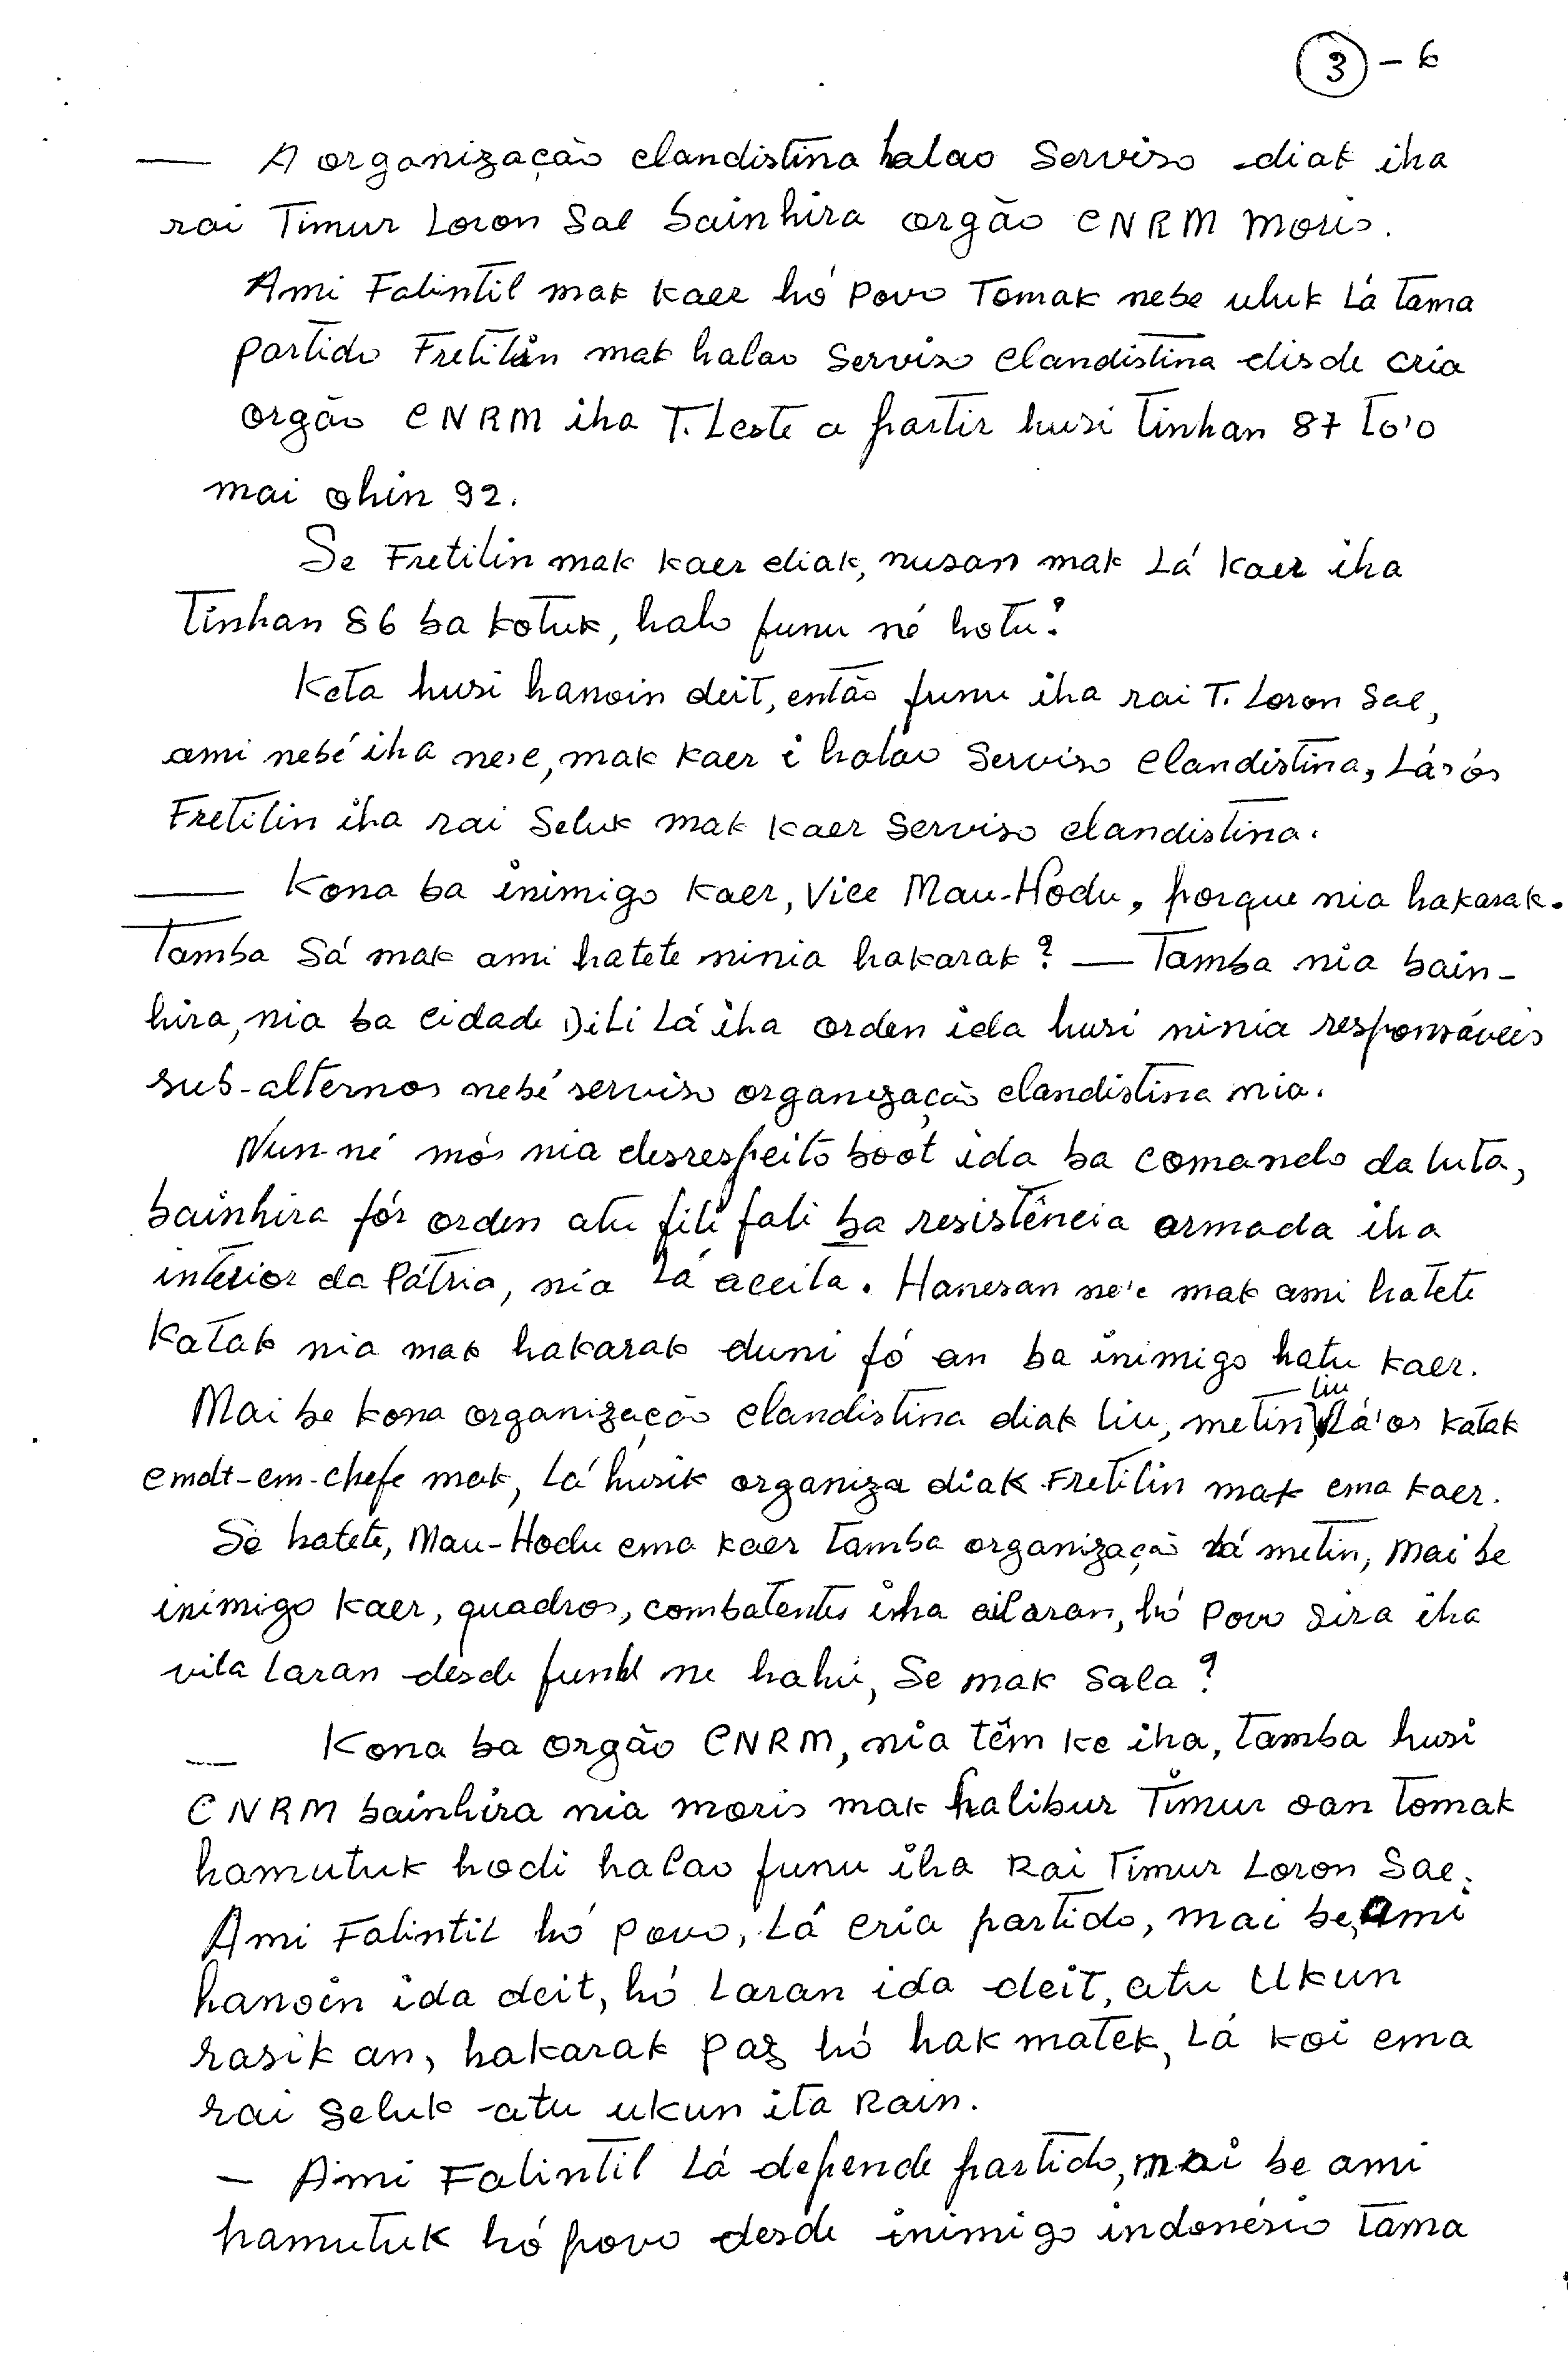 ③ - 6
— A organização clandistina halao Serviso diak iha
rai Timur Loron Sae bainhira orgão CNRM moris.
Ami Falintil mak kaer hó Povo Tomak nebe uluk Lá tama
partido Fretilin mak halao Serviso clandistina disde cria
orgão CNRM iha T. Leste a partir husi tinhan 87 to'o
mai ohin 92.
Se Fretilin mak kaer diak, nusan mak Lá kaer iha
Tinhan 86 ba kotuk, halo funu né hotu?
Keta husi hanoin deit, então funu iha rai T. Loron Sae,
ami nebé iha ne'e, mak kaer i halao Serviso clandistina, Lá'ós
Fretilin iha rai Seluk mak kaer Serviso clandistina.
— Kona ba inimigo kaer, Vice Mau-Hodu, porque nia hakarak.
Tamba Sá mak ami hatete ninia hakarak? — Tamba nia bain-
hira, nia ba cidade Dili Lá iha orden ida husi ninia responsáveis
sub-alternos nebé serviso organização clandistina nia.
Nun-né mós nia desrespeito boot ida ba comando da luta,
bainhira fór orden atu fili fali ba resistência armada iha
interior da Pátria, nia Lá aceita. Hanesan ne'e mak ami hatete
Katak nia mak hakarak duni fó an ba inimigo hatu kaer.
Mai be kona organização clandistina diak liu, metin liu, Lá'os katak
cmdt-em-chefe mak, Lá húsik organiza diak Fretilin mak ema kaer.
Se hatete, Mau-Hodu ema kaer tamba organização Lá metin, mai be
inimigo kaer, quadros, combatentes iha ailaran, hó Povo sira iha
vila laran desde funu ne hahú, Se mak Sala?
— Kona ba orgão CNRM, nia têm ke iha, tamba husi
CNRM bainhira nia moris mak halibur Timur oan tomak
hamutuk hodi halao funu iha Rai Timur Loron Sae.
Ami Falintil hó povo, Lá cria partido, mai be, ami
hanoin ida deit, hó Laran ida deit, atu Ukun
rasik an, hakarak paz hó hak matek, Lá koi ema
rai seluk atu ukun ita Rain.
— Ami Falintil Lá depende partido, mai be ami
hamutuk hó povo desde inimigo indonésio tama